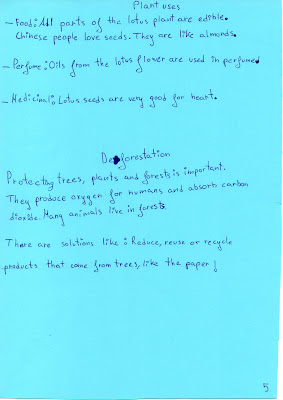 Plant uses
- Food: All parts of the lotus plant are edible.
Chinese people love seeds. They are like almonds.
- Perfume: Oils from the lotus flower are used in perfumed
- Medicinal: Lotus seeds are very good for heart.
Deforestation
Protecting trees, plants and forests is important.
They produce oxygen for humans and absorb carbon
dioxide. Many animals live in forests.
There are solutions like: Reduce, reuse or recycle
products that come from trees, like the paper!
5